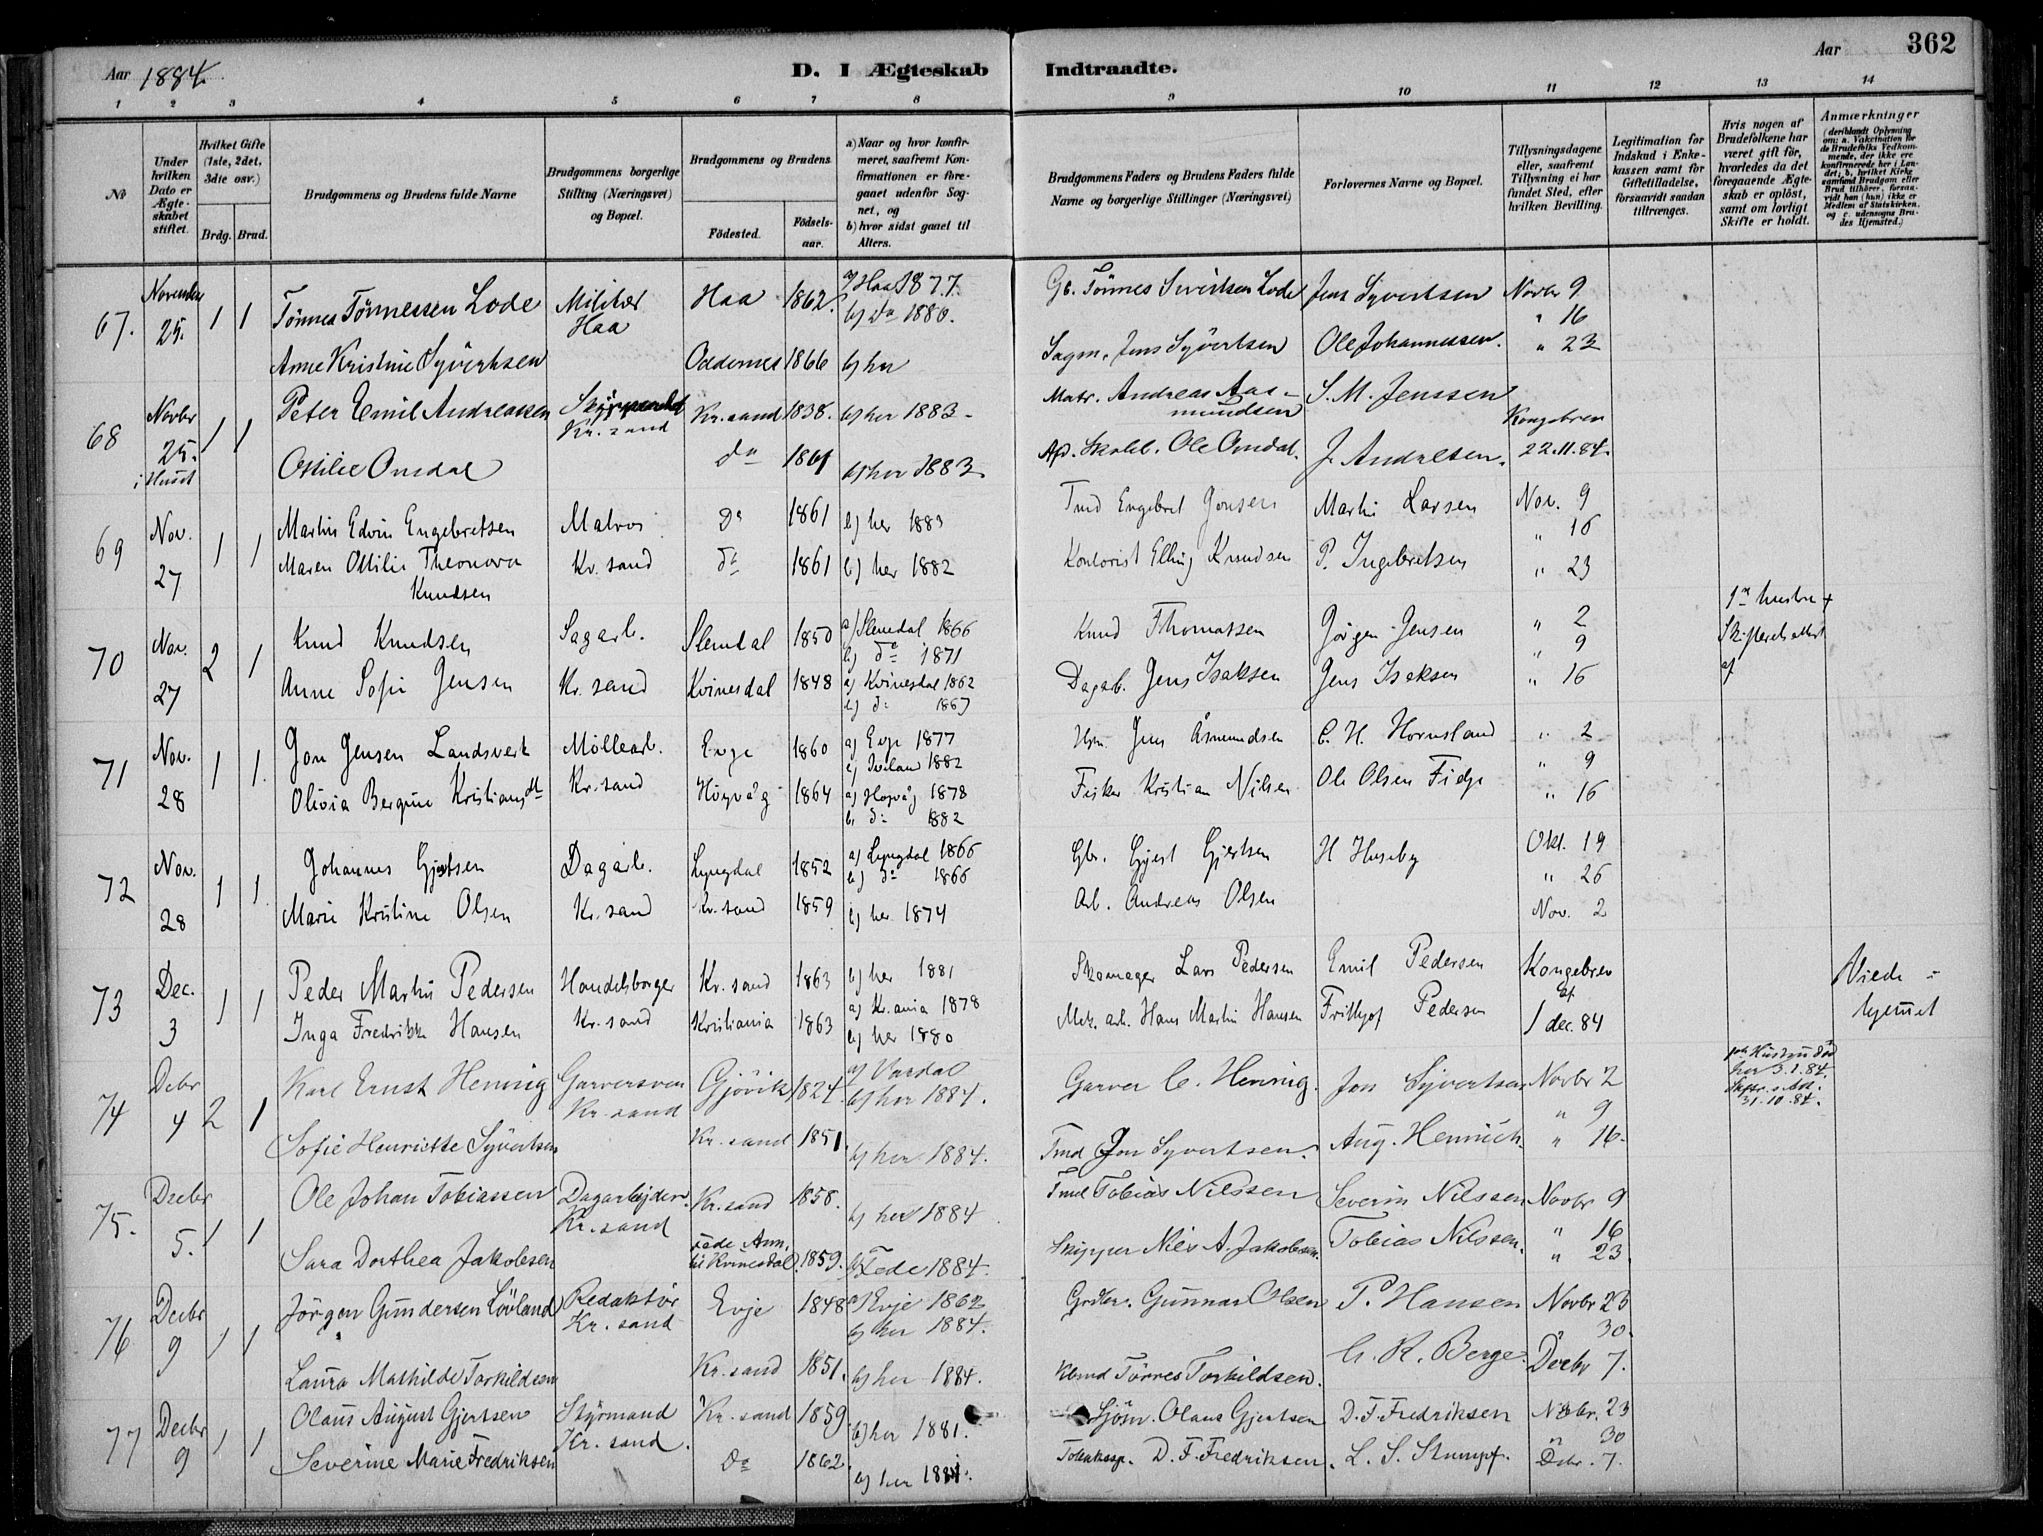 Aar 1884.
D. I Ægteskab Indtraadte.
Aar
362
1 2 3 4 5 6 7 8 9 10 11 12 13 14
No
Under hvilken Dato er Ægteskabet stiftet.
Hvilket Gifte (1ste, 2det, 3die osv.)
Brdg. Brud.
Brudgommens og Brudens fulde Navne
Brudgommens borgerlige Stilling (Næringsvei) og Bopæl.
Brudgommens og Brudens
Fødested. Fødselsaar.
a) Naar og hvor konfirmeret, saafremt Konfirmationen er foregaaet udenfor Sognet, og
b) hvor sidst gaaet til Alters.
Brudgommens Faders og Brudens Faders fulde Navne og borgerlige Stillinger (Næringsvei)
Forlovernes Navne og Bopæl.
Tillysningsdagene eller, saafremt Tillysning ei har fundet Sted, efter hvilken Bevilling.
Legitimation for Indskud i Enkekassen samt for Giftetilladelse, forsaavidt saadan tiltrænges.
Hvis nogen af Brudefolkene har været gift før, hvorledes da det foregaaende Ægteskab er opløst, samt om lovligt Skifte er holdt.
Anmærkninger
(deriblandt Oplysning om: a. Vakcination for de Brudefolks Vedkommende, der ikke ere konfirmerede her i Landet; b. hvilket Kirkesamfund Brudgom eller Brud tilhører, forsaavidt han (hun) ikke er Medlem af Statskirken, og c. udensogns Brudes Hjemsted.)
67. November 25. 1 1 Tönnes Tönnessen Lode Militær Haa Haa 1862. a) Haa 1877. b) do 1880. Gb. Tönnes Sivertsen Lode Jens Syvertsen Novbr 9 " 16 " 23
Anne Kristine Syvertsen Oddernes 1866 b) her Sagm. Jens Syvertsen Ole Johannessen.
68 Novbr 25. i Huset 1 1 Peter Emil Andreassen Kr.sand Kr.sand 1838. b) her 1883. Matr. Andreas Aasmundsen S. M. Jenssen Kongebrev 22.11.84.
Ottilie Omdal do 1861 b) her 1883. Ole Omdal. J. Andresen.
69 Nov. 27 1 1 Martin Edvin Engebretsen Matros Do 1861 b) her 1883 Tmd Engebret Jensen Martin Larsen Nov. 9 " 16 " 23
Maren Ottilie Theonora Knudsen Kr.sand do 1861 b) her 1882 Kontorist Elling Knudsen P. Ingebretsen
70 Nov. 27 2 1 Knud Knudsen Sagarb. Slemdal 1850 a) Slemdal 1866 b) do 1871 Knud Thomassen Jørgen Jensen " 2 " 9 " 16 1ste hustru + Skifteretsattest af
Anne Sofie Jensen Kr.sand Kvinesdal 1848 a) Kvinesdal 1862 b) do 1867 Dagarb. Jens Isaksen Jens Isaksen
71 Nov. 28 1 1 Jon Jensen Landsverk Møllearb. Evje 1860 a) Evje 1877 b) Iveland 1882 Hsm. Jens Åsmundsen C. H. Hornsland " 2 " 9 " 16
Olivia Bergine Kristiansdt Kr.sand Høgvåg 1864 a) Høgvåg 1878 b) do 1882 Fisker Kristian Nilsen Ole Olsen Fidje
72 Nov. 28 1 1 Johannes Gjertsen Dagarb. Lyngdal 1852 a) Lyngdal 1866 b) do 1866 Gbr. Gjert Gjertsen H Huseby Okt. 19 " 26 Nov. 2
Marie Kristine Olsen Kr.sand Kr.sand 1859 b) her 1874 Arb. Andreas Olsen
73 Dec. 3 1 1 Peder Martin Pedersen Handelsborger Kr.sand 1863 b) her 1881 Skomager Lars Pedersen Emil Pedersen Kongebrev af 1 dec. 84 Viede i hjemmet
Inga Fredrikke Hansen Kr.sand Kristiania 1863 a) Kr.ania 1878 b) her 1880 Mek. arb. Hans Martin Hansen Frithjof Pedersen
74 Debr 4 2 1 Karl Ernst Hennig Garversvend Kr.sand Gjövik 1824. a) Vardal b) her 1884. Garver C. Hennig. Jon Syvertsen Novbr 2 " 9 " 16. Hustru død her 3.1.84. Skiftr.s Att. 31.10.84.
Sofie Henriette Syvertsen Kr.sand 1851. b) her 1884. Tmd Jon Syvertsen. Aug. Hennich.
75. Decbr 5. 1 1 Ole Johan Tobiassen Dagarbejder. Kr.sand Kr.sand 1858. b) her 1884. Tmd Tobias Nilssen Severin Nilssen Novbr 9 " 16 " 23.
Sara Dorthea Jakobsen Fede Ann. til Kvinesdal. 1859. b) Fede 1884. Skipper Niels A. Jakobsen. Tobias Nilssen.
76 Decbr 9 1 1 Jörgen Gundersen Lövland Redaktör Kr.sand Evje 1848 a) Evje 1862 b) her 1884. Grdbr. Gunnar Olsen P. Hansen Novbr 23 " 30. Decbr 7.
Laura Mathilde Torkildsen Kr.sand 1851. b) her 1884. Kbmd Törres Torkildsen. G. R. Berge.
77 Decbr 9 1 1 Olaus August Gjertsen Styrmand Kr.sand. Kr.sand 1859 b) her 1881. Sjöm. Olaus Gjertsen D. F. Fredriksen Novbr. 23 " 30 Debr. 7.
Severine Marie Fredriksen Do 1862. b) her 1881. D. F. Fredriksen. L. S. Stumpf.